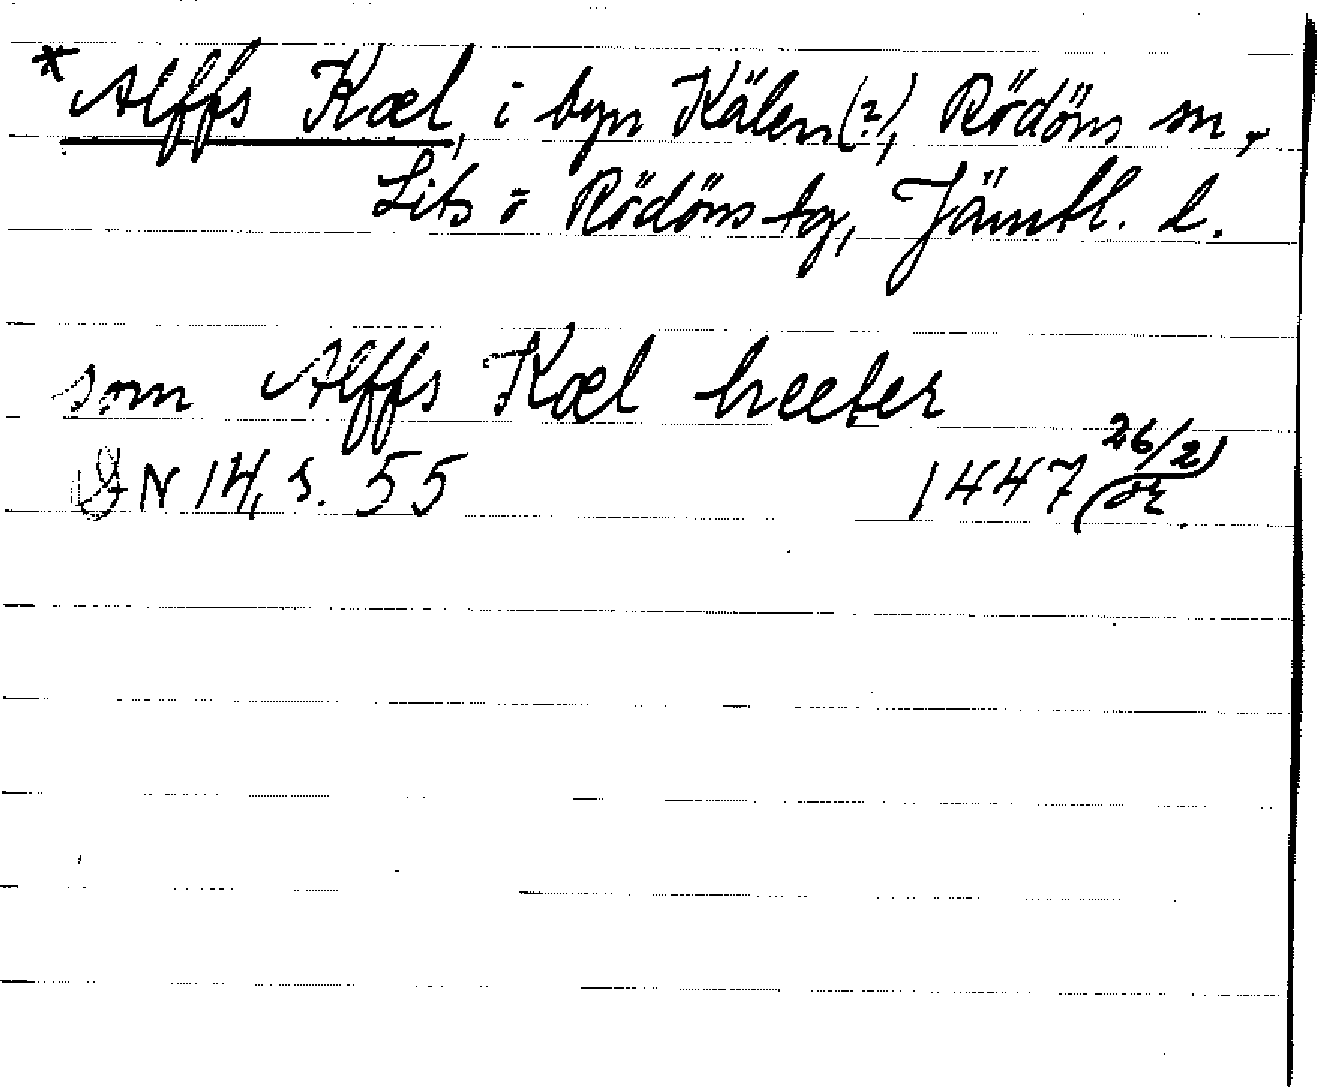 *Alffs Kæl, i byn Kälen (?), Rödöns sn,
Lits o Rödöns tg, Jämtl. l.
som Alffs Kæl heeter
DN 14, s. 55 1447 26/2 (or.